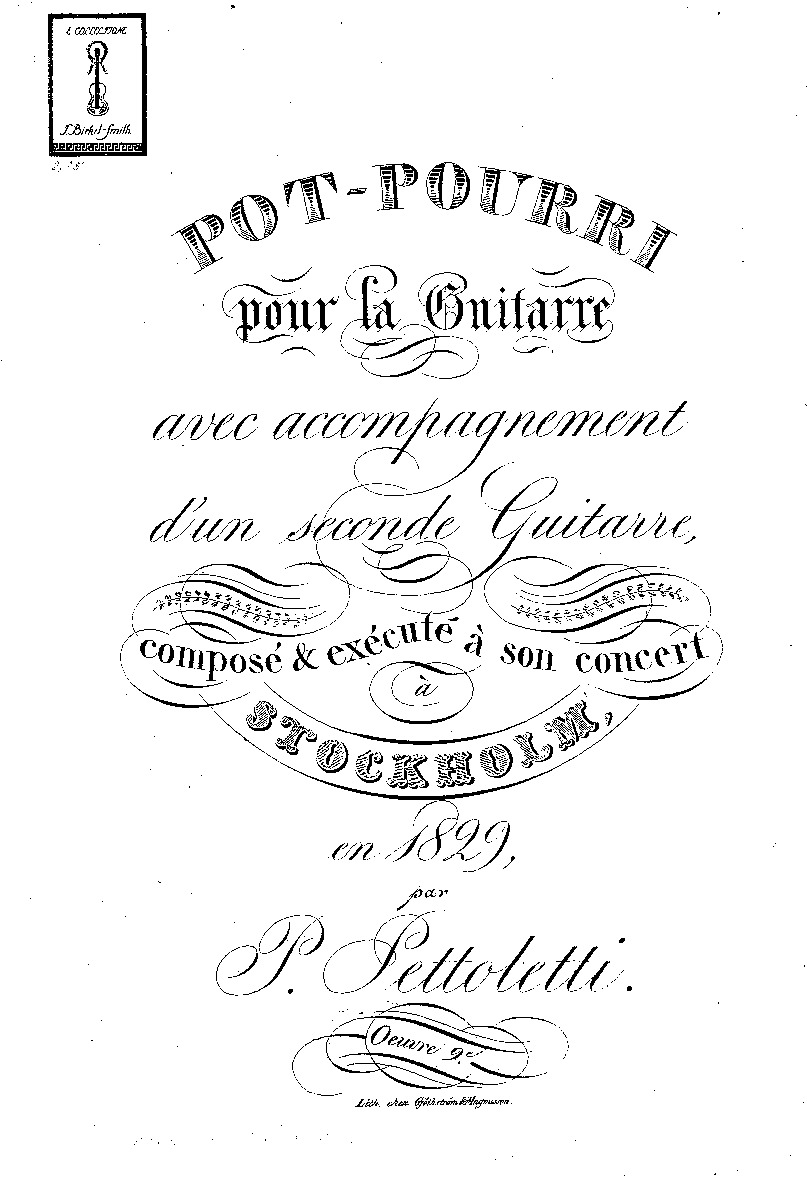 J. Birkel-Smith
POT-POURRI
pour la Guitarre
avec accompagnement
d'un seconde Guitarre,
composé & exécuté à son concert
à
STOCKHOLM,
en 1829,
par
P. Pettoletti.
Oeuvre 9.e
Lith. chez Gjöthström & Magnusson.